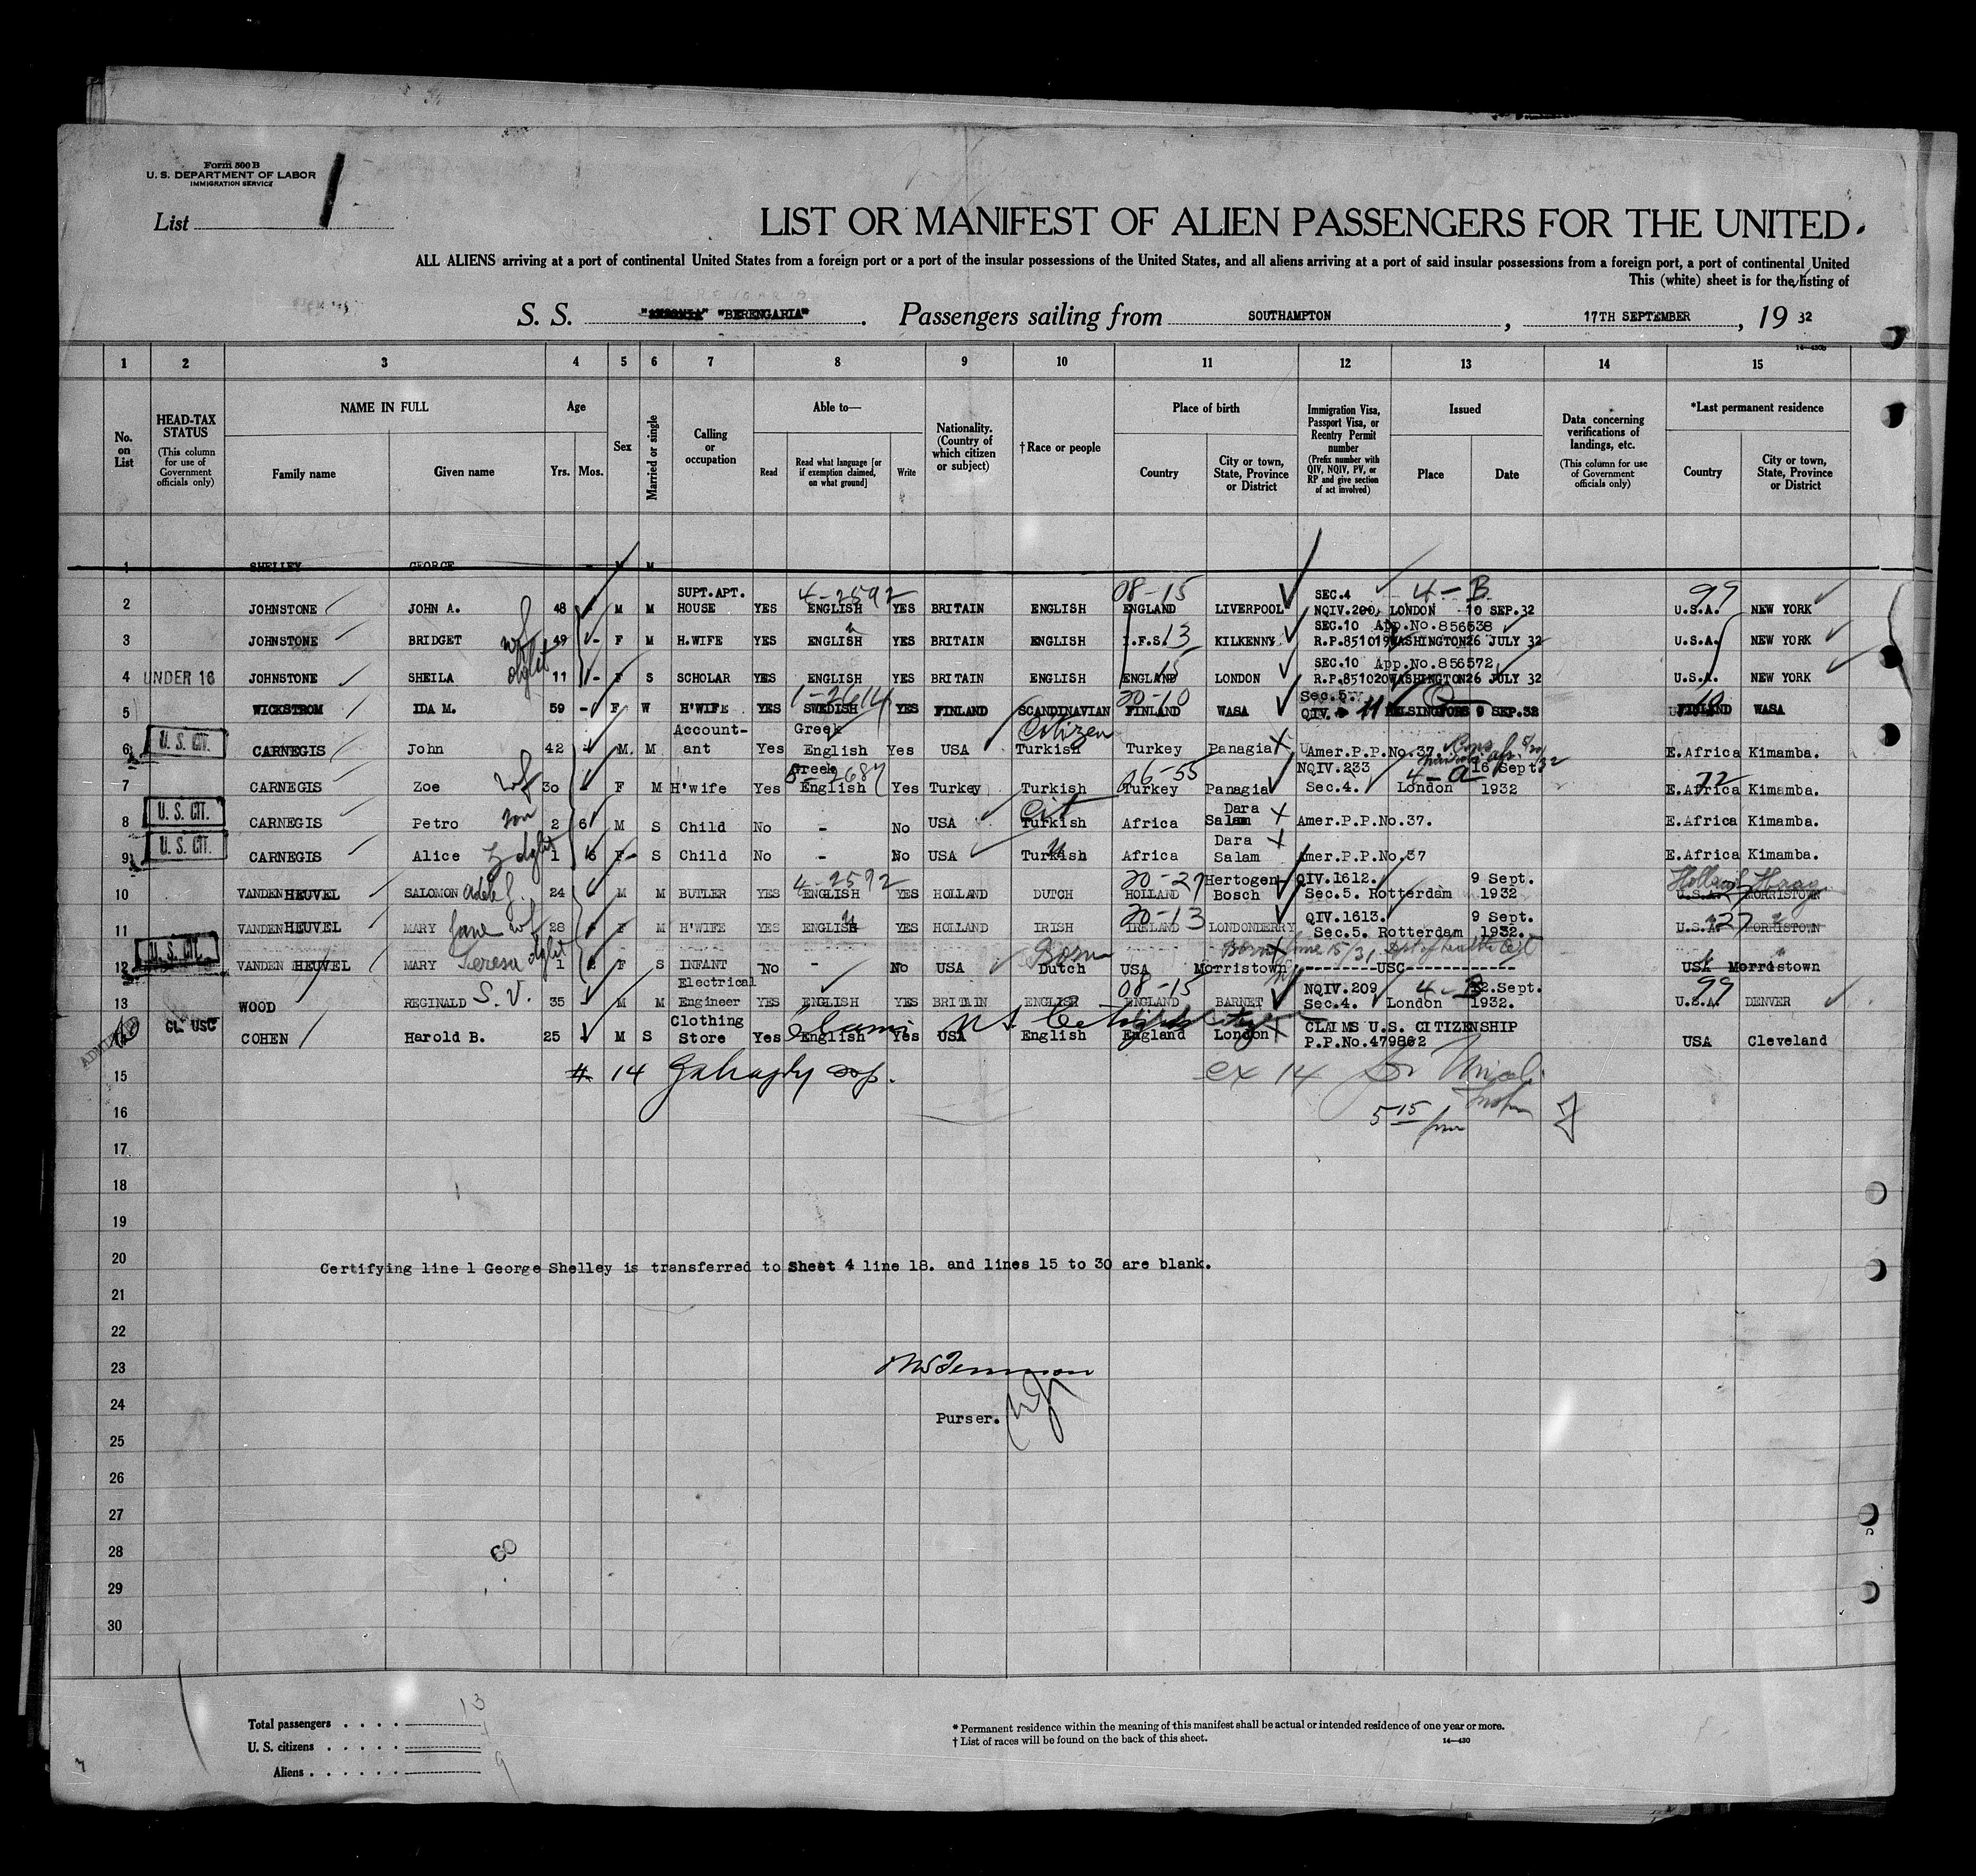 Form 500 B
U. S. DEPARTMENT OF LABOR
IMMIGRATION SERVICE
List 1
LIST OR MANIFEST OF ALIEN PASSENGERS FOR THE UNITED
ALL ALIENS arriving at a port of continental United States from a foreign port or a port of the insular possessions of the United States, and all aliens arriving at a port of said insular possessions from a foreign port, a port of continental United
This (white) sheet is for the listing of
S. S. "BERENGARIA". Passengers sailing from SOUTHAMPTON, 17TH SEPTEMBER, 19 32
14-430b
1 2 3 4 5 6 7 8 9 10 11 12 13 14 15
No. on List
HEAD-TAX STATUS (This column for use of Government officials only)
NAME IN FULL Family name Given name
Age Yrs. Mos.
Sex
Married or single
Calling or occupation
Able to— Read Read what language [or if exemption claimed, on what ground] Write
Nationality. (Country of which citizen or subject)
†Race or people
Place of birth Country City or town, State, Province or District
Immigration Visa, Passport Visa, or Reentry Permit number (Prefix number with QIV, NQIV, PV, or RP and give section of act involved)
Issued Place Date
Data concerning verifications of landings, etc. (This column for use of Government officials only)
*Last permanent residence Country City or town, State, Province or District
1 SHELLEY GEORGE M M
2 JOHNSTONE JOHN A. 48 M M SUPT.APT. HOUSE YES 4-2592 ENGLISH YES BRITAIN ENGLISH 08-15 ENGLAND LIVERPOOL SEC.4 NQIV.200, LONDON 4-B 10 SEP.32 99 U.S.A. NEW YORK
3 JOHNSTONE BRIDGET wf 49 - F M H.WIFE YES ENGLISH YES BRITAIN ENGLISH I.F.S. 13 KILKENNY SEC.10 App.No.856538 R.P.851019 WASHINGTON 26 JULY 32 U.S.A. NEW YORK
4 UNDER 16 JOHNSTONE SHEILA dght 11 - F S SCHOLAR YES ENGLISH YES BRITAIN ENGLISH ENGLAND 15 LONDON SEC.10 App.No.856572 R.P.851020 WASHINGTON 26 JULY 32 U.S.A. NEW YORK
5 WICKSTROM IDA M. 59 - F W H'WIFE YES 1-2614 SWEDISH YES FINLAND SCANDINAVIAN 20-10 FINLAND WASA Sec.5 QIV. 11 HELSINGFORS 9 SEP.32 FINLAND WASA
6 U. S. CIT. CARNEGIS John 42 M. M Account-ant Yes Greek English Yes USA Citizen Turkish Turkey Panagia Amer.P.P.No.37. E.Africa Kimamba.
7 CARNEGIS Zoe wf 30 F M H'wife Yes Greek 8-2687 English Yes Turkey Turkish 06-55 Turkey Panagia NQIV.233 Sec.4. 4-a London 16 Sept. 1932 72 E.Africa Kimamba.
8 U. S. CIT. CARNEGIS Petro son 2 6 M S Child No - No USA Cit Turkish Africa Dara Salam Amer.P.P.No.37. E.Africa Kimamba.
9 U. S. CIT. CARNEGIS Alice dght 1 6 F S Child No - No USA Turkish Africa Dara Salam Amer.P.P.No.37 E.Africa Kimamba.
10 VANDEN HEUVEL SALOMON 24 M M BUTLER YES 4-2592 ENGLISH YES HOLLAND DUTCH 20-27 HOLLAND Hertogen Bosch QIV.1612. Sec.5. Rotterdam 9 Sept. 1932 Holland Haag U.S.A. MORRISTOWN
11 VANDEN HEUVEL MARY Jane wf 28 F M H'WIFE YES ENGLISH YES HOLLAND IRISH 20-13 IRELAND LONDONDERRY QIV.1613. Sec.5. Rotterdam 9 Sept. 1932. U.S.A. 27 MORRISTOWN
12 U. S. CIT. VANDEN HEUVEL MARY Teresa dght 1 F S INFANT No - No USA Born Dutch USA Morristown Born June 15/31 Dept of Health Cit ---------USC------------- USA Morristown
13 WOOD REGINALD S. V. 35 M M Electrical Engineer YES ENGLISH YES BRITAIN ENGLISH 08-15 ENGLAND BARNET NQIV.209 Sec.4. 4-B London 12.Sept. 1932. 99 U.S.A. DENVER
ADMITTED CL. USC COHEN Harold B. 25 M S Clothing Store Yes English Yes USA English England London CLAIMS U.S. CITIZENSHIP P.P.No.479862 USA Cleveland
Claims US Citizenship
15 # 14 ex 14
16 5 15 pm
17
18
19
20
Certifying line 1 George Shelley is transferred to sheet 4 line 18. and lines 15 to 30 are blank.
21
22
23
24
Purser.
25
26
27
28
29
30
Total passengers . . . . 13
U. S. citizens . . . . .
Aliens . . . . . . 9
* Permanent residence within the meaning of this manifest shall be actual or intended residence of one year or more.
† List of races will be found on the back of this sheet.
14-430